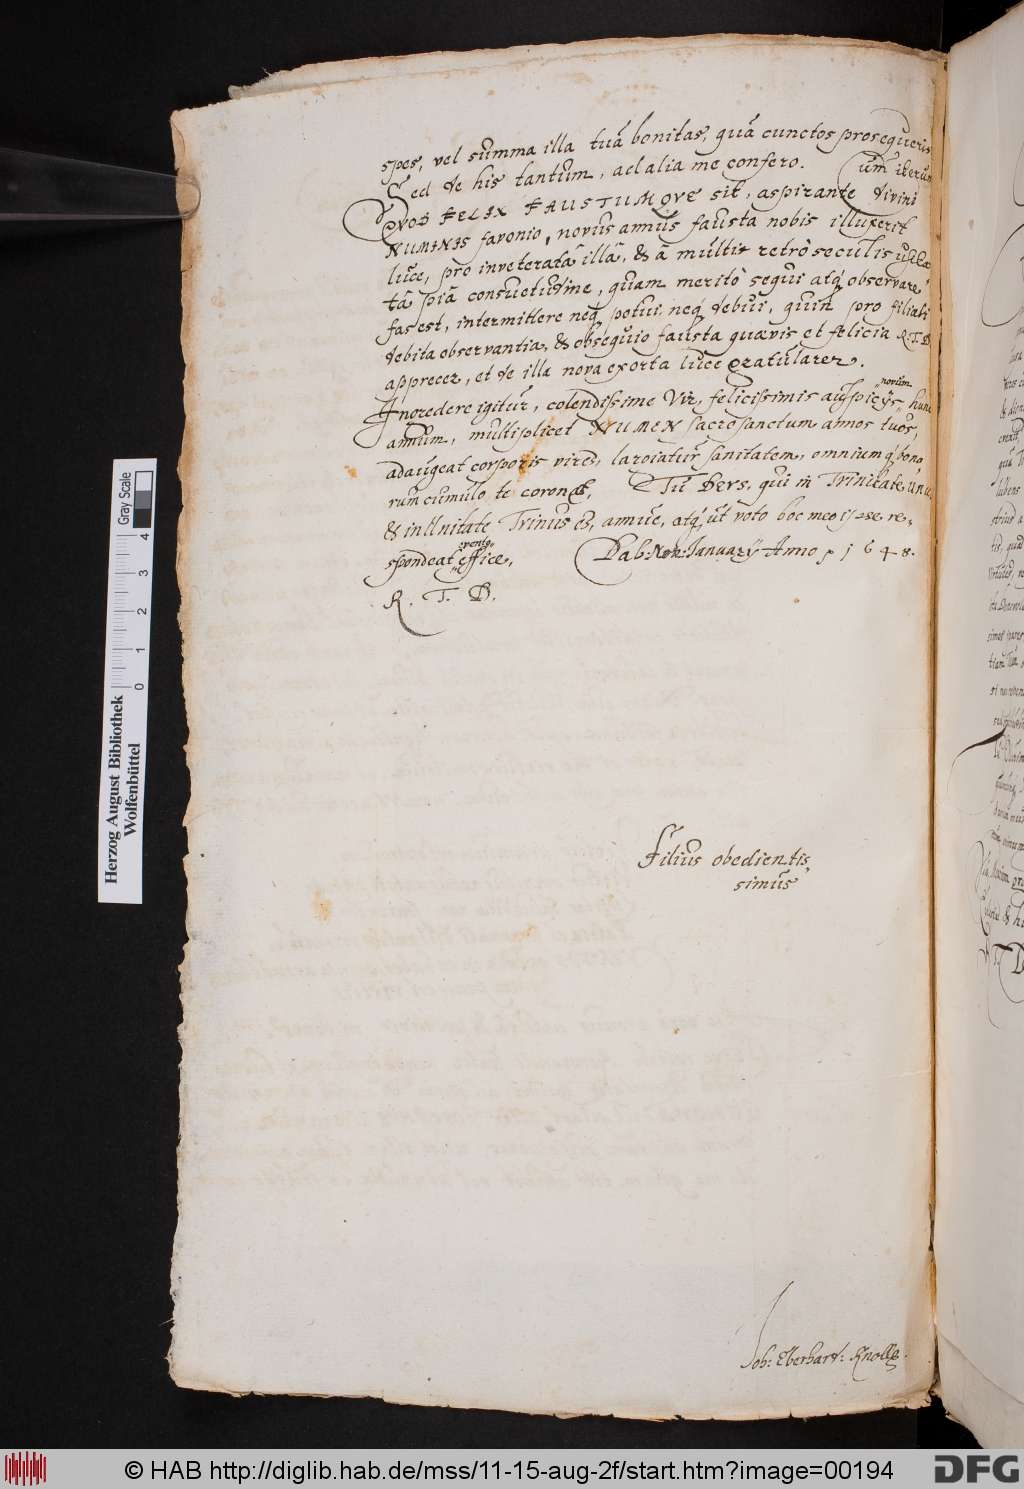 spes, vel summa illa tuâ bonitas, quâ cunctos prosequeris
Sed de his tantum, ad alia me confero. Cum iterum
QVOD FELIX FAUSTUMQVE sit, aspirante divini
NUMINIS favonio, novus annus fausta nobis illuxerit
luce, pro inveterata illâ, & â multis retrò seculis
tâ piâ consuetudine, quam meritò sequi atq observare
fas est, intermittere neq potui neq debui, quin pro filiali
debita observantia & obsequio fausta quævis et felicia R. T. D.
apprecer, et de illa nova exorta luce gratularer.
Ingredere igitur, colendissime Vir, felicissimis auspicijs novum hunc
annum, multiplicet NUMEN sacrosanctum annos tuos,
adaugeat corporis vires, largiatur sanitatem, omniumq bono
rum cumulo te coronet, Tu Deus, qui in Trinitate Unus
& in Unitate Trinus es, annue, atq ut voto hoc meo re-
spondeat eventus effice, Dab. Non. Januarij Anno 1648.
R. T. D.
Filius obedientis
simus
Joh: Eberhard: Knolle.
Gray Scale
4 3 2 1 0
Herzog August Bibliothek
Wolfenbüttel
© HAB http://diglib.hab.de/mss/11-15-aug-2f/start.htm?image=00194
DFG